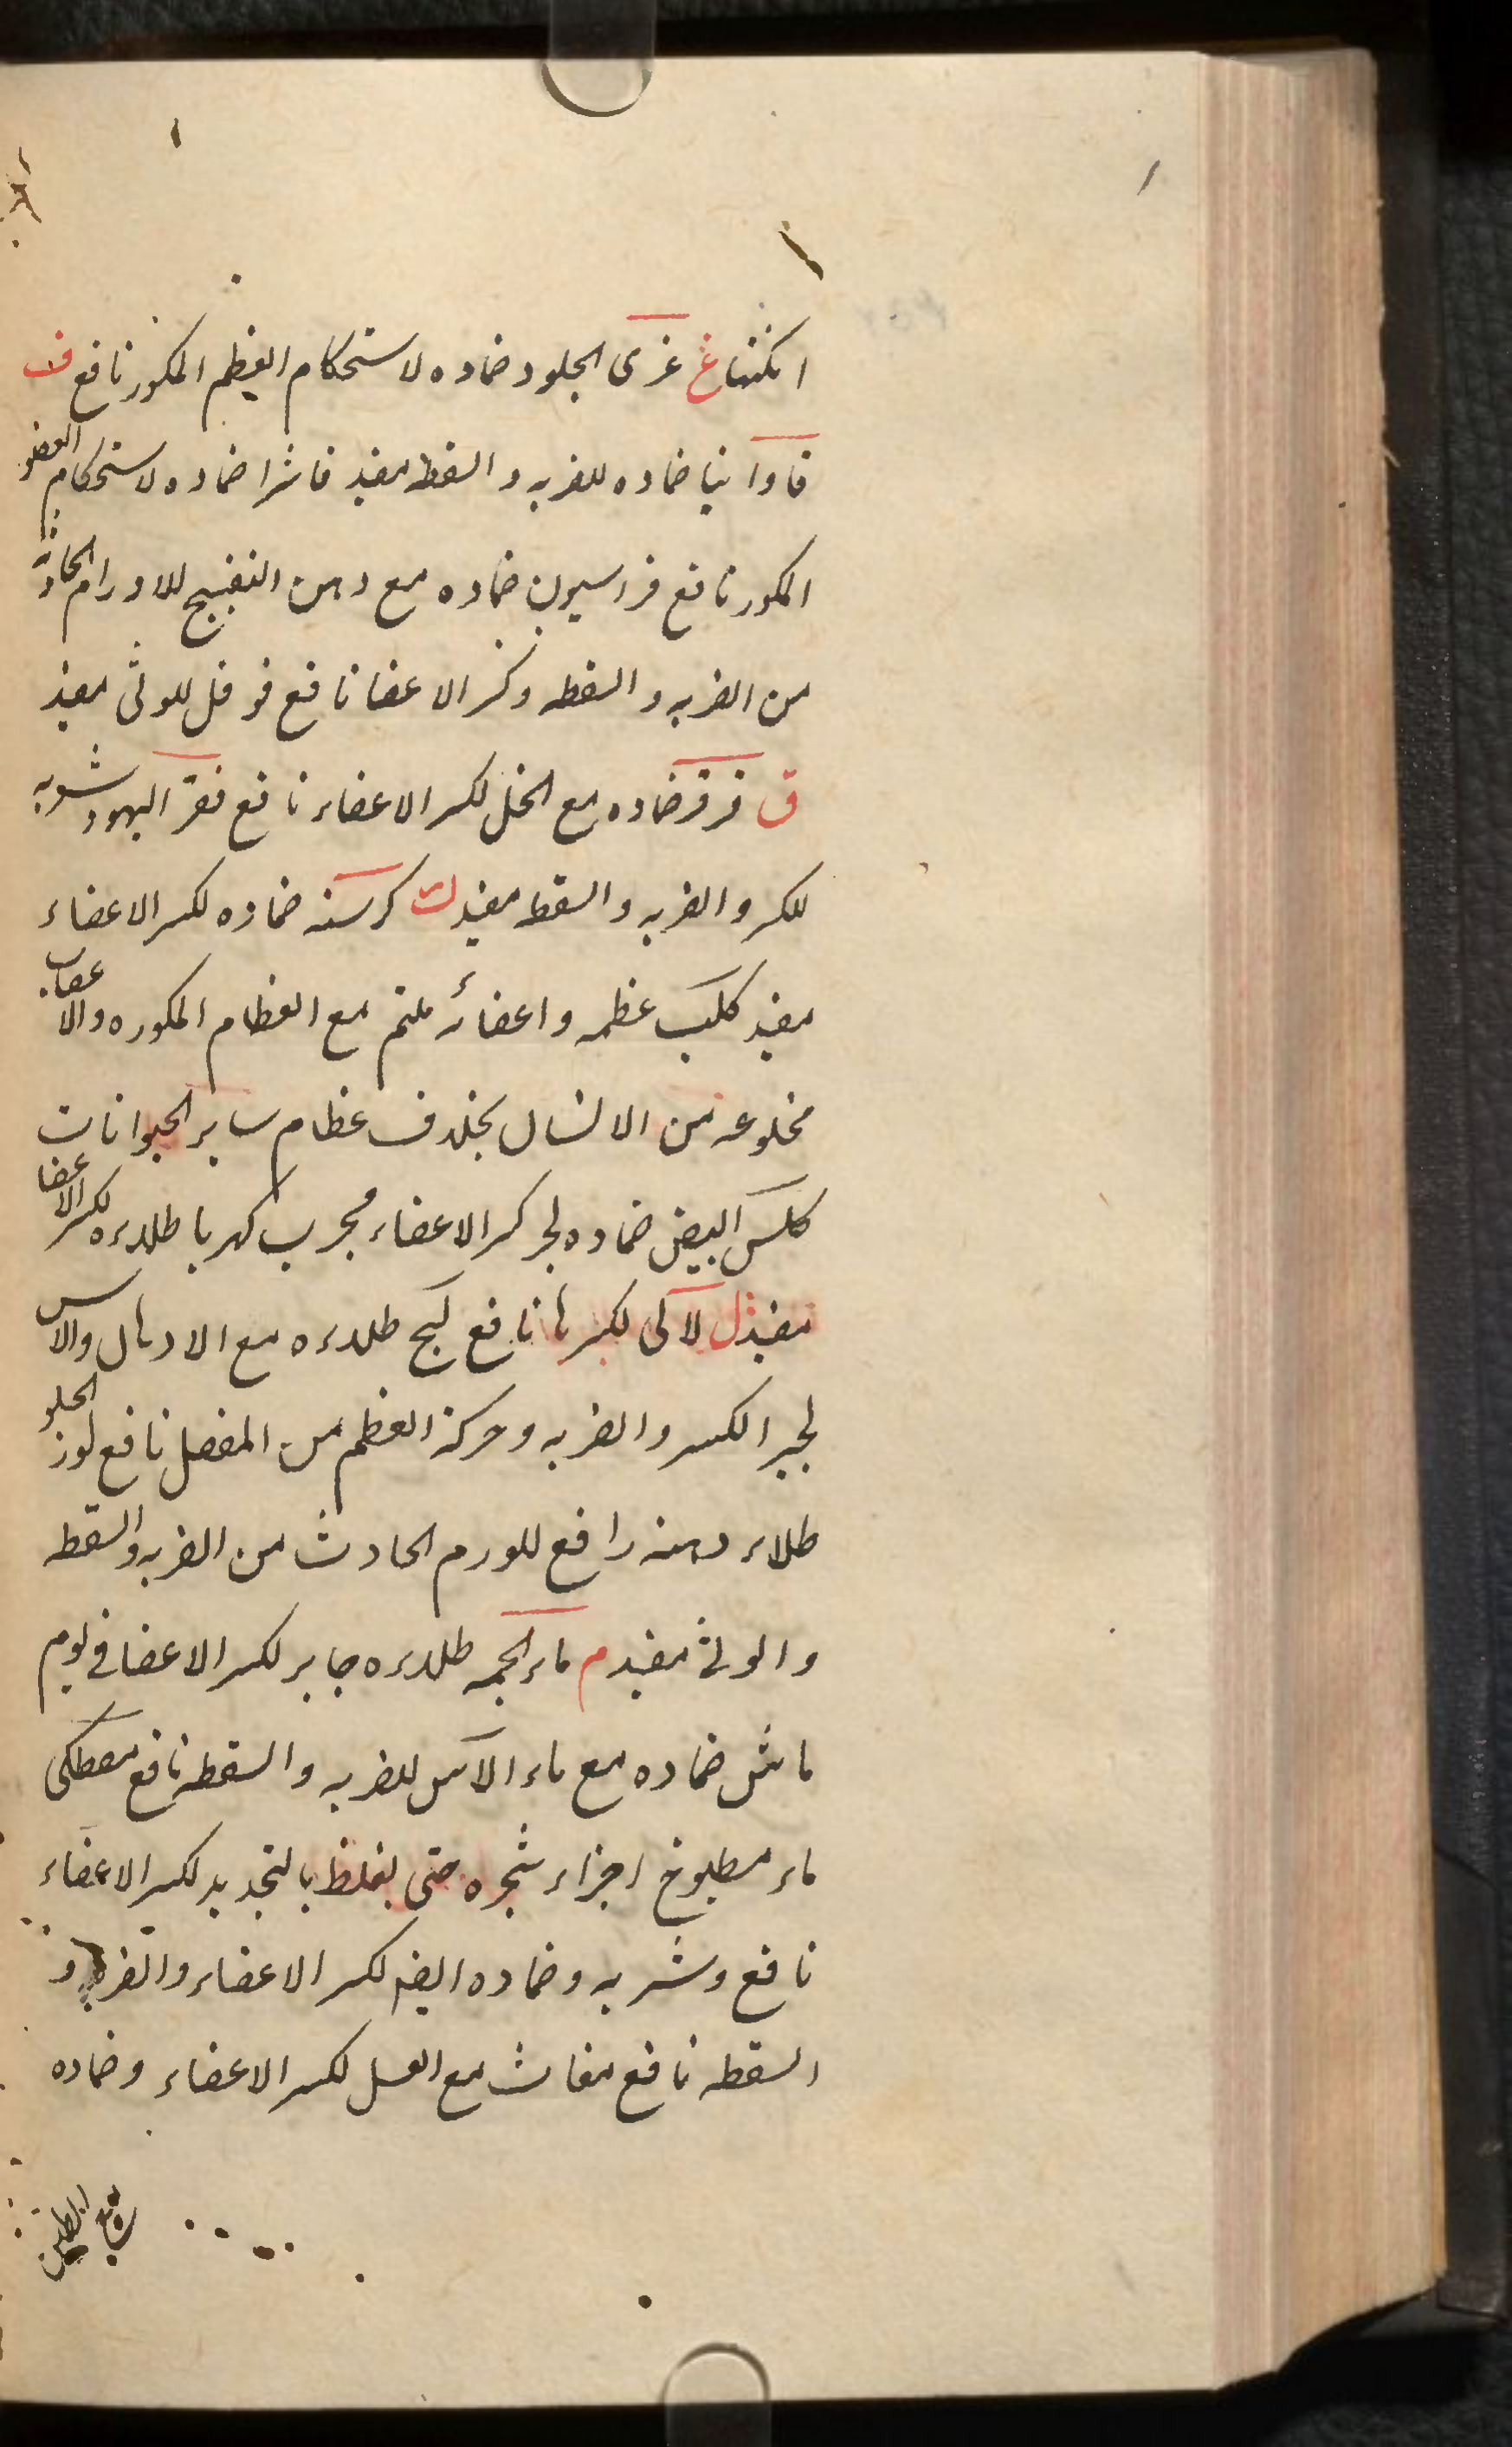 غ غرى الجلود ضماده لاستحكام العظم المكسور نافع ف
فاوانیا ضماده للضربه والسقطه مفید فاشرا ضماده لاستحكام العضو
المكسور نافع فراسیون ضماده مع دهن البنفسج للاورام الحادثة
من الضربه والسقطه وكسر الاعضا نافع فوفل للوثی مفید
ق ضماده مع الخل لكسر الاعضاء نافع قفر الیهود شربه
للكسر والضربه والسقطه مفید ك كرسنه ضماده لكسر الاعضاء
مفید كلب عظمه واعضائه ملتم مع العظام المكسوره والاعصاب
مخلوعه من الانسان بخلاف عظام سایر الحیوانات
كلس البیض ضماده لجبر كسر الاعضاء مجرب كهربا طلاءه لكسر الاعضا
مفید ل لآلی لكسرها نافع طلاءه مع الادهان والاس
لجبر الكسر والضربه وحركة العظم من المفصل نافع لوز الحلو
طلاء دهنه رافع للورم الحادث من الضربه والسقطه
والوثی مفید م ماء طلاءه جابر لكسر الاعضا فی یوم
ماش ضماده مع ماء الآس للضربه والسقطه نافع مصطكی
ماء مطبوخ اجزاء شجره حتی یغلظ بالتجدید لكسر الاعضاء
نافع وشربه وضماده ایضا لكسر الاعضاء والضربه و
السقطه نافع مغاث مع العسل لكسر الاعضاء وضماده